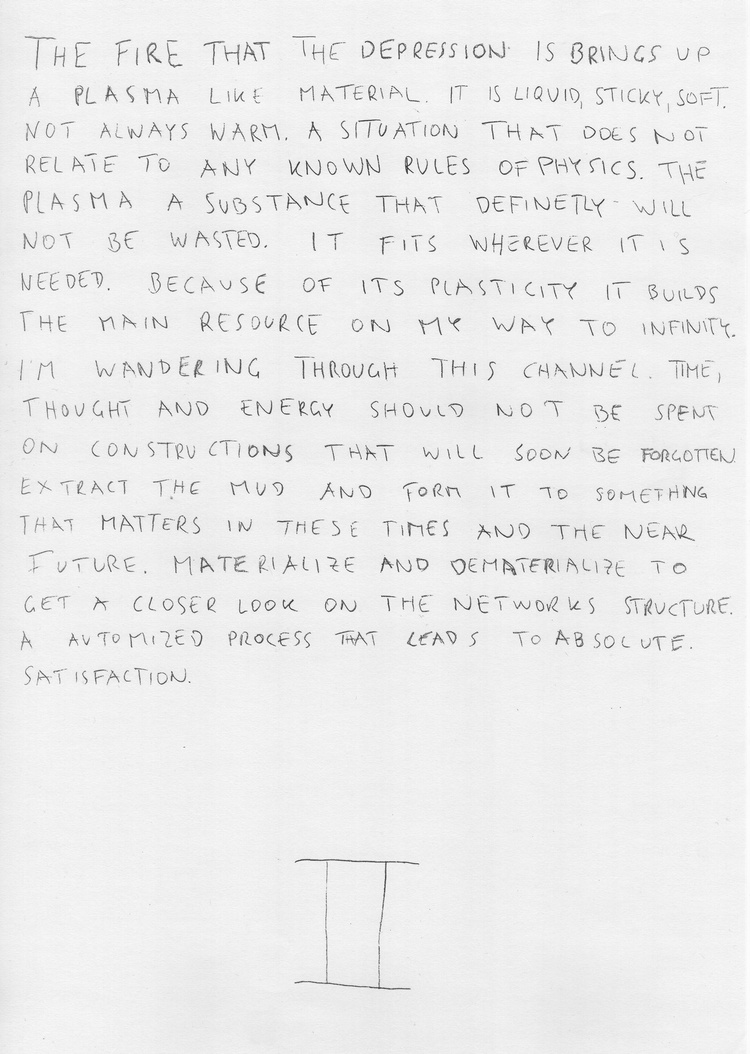 THE FIRE THAT THE DEPRESSION IS BRINGS UP
A PLASMA LIKE MATERIAL. IT IS LIQUID, STICKY, SOFT.
NOT ALWAYS WARM. A SITUATION THAT DOES NOT
RELATE TO ANY KNOWN RULES OF PHYSICS. THE
PLASMA A SUBSTANCE THAT DEFINETLY WILL
NOT BE WASTED. IT FITS WHEREVER IT IS
NEEDED. BECAUSE OF ITS PLASTICITY IT BUILDS
THE MAIN RESOURCE ON MY WAY TO INFINITY.
I'M WANDERING THROUGH THIS CHANNEL. TIME,
THOUGHT AND ENERGY SHOULD NOT BE SPENT
ON CONSTRUCTIONS THAT WILL SOON BE FORGOTTEN.
EXTRACT THE MUD AND FORM IT TO SOMETHING
THAT MATTERS IN THESE TIMES AND THE NEAR
FUTURE. MATERIALIZE AND DEMATERIALIZE TO
GET A CLOSER LOOK ON THE NETWORKS STRUCTURE.
A AUTOMIZED PROCESS THAT LEADS TO ABSOLUTE.
SATISFACTION.
II